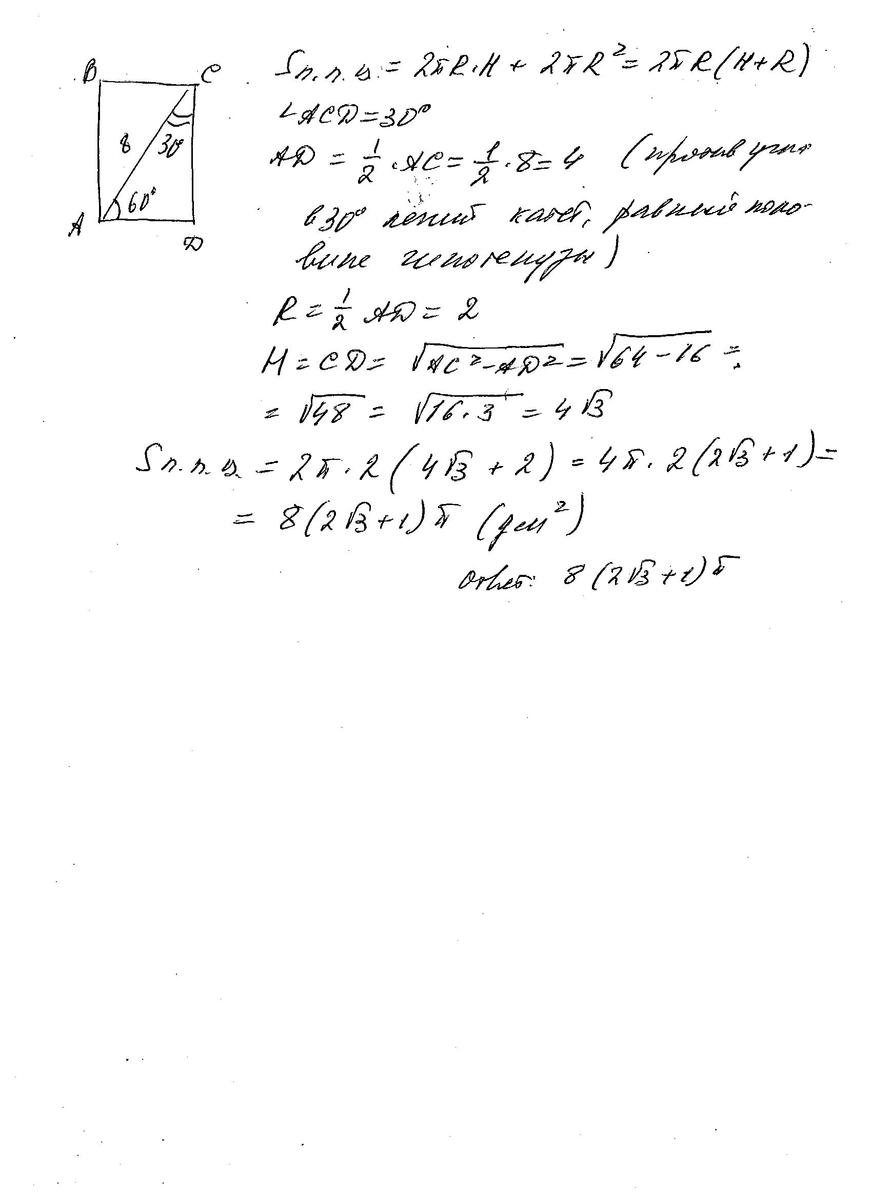 B C
8 30°
A 60° D
Sп.п.ц. = 2πR·H + 2πR² = 2πR(H+R)
∠ACD=30°
AD = 1/2 · AC = 1/2 · 8 = 4 (против угла
в 30° лежит катет, равный поло-
вине гипотенузы)
R = 1/2 AD = 2
H = CD = √AC²-AD² = √64-16 =
= √48 = √16·3 = 4√3
Sп.п.ц. = 2π·2(4√3+2) = 4π·2(2√3+1) =
= 8(2√3+1)π (дм²)
Ответ: 8(2√3+1)π